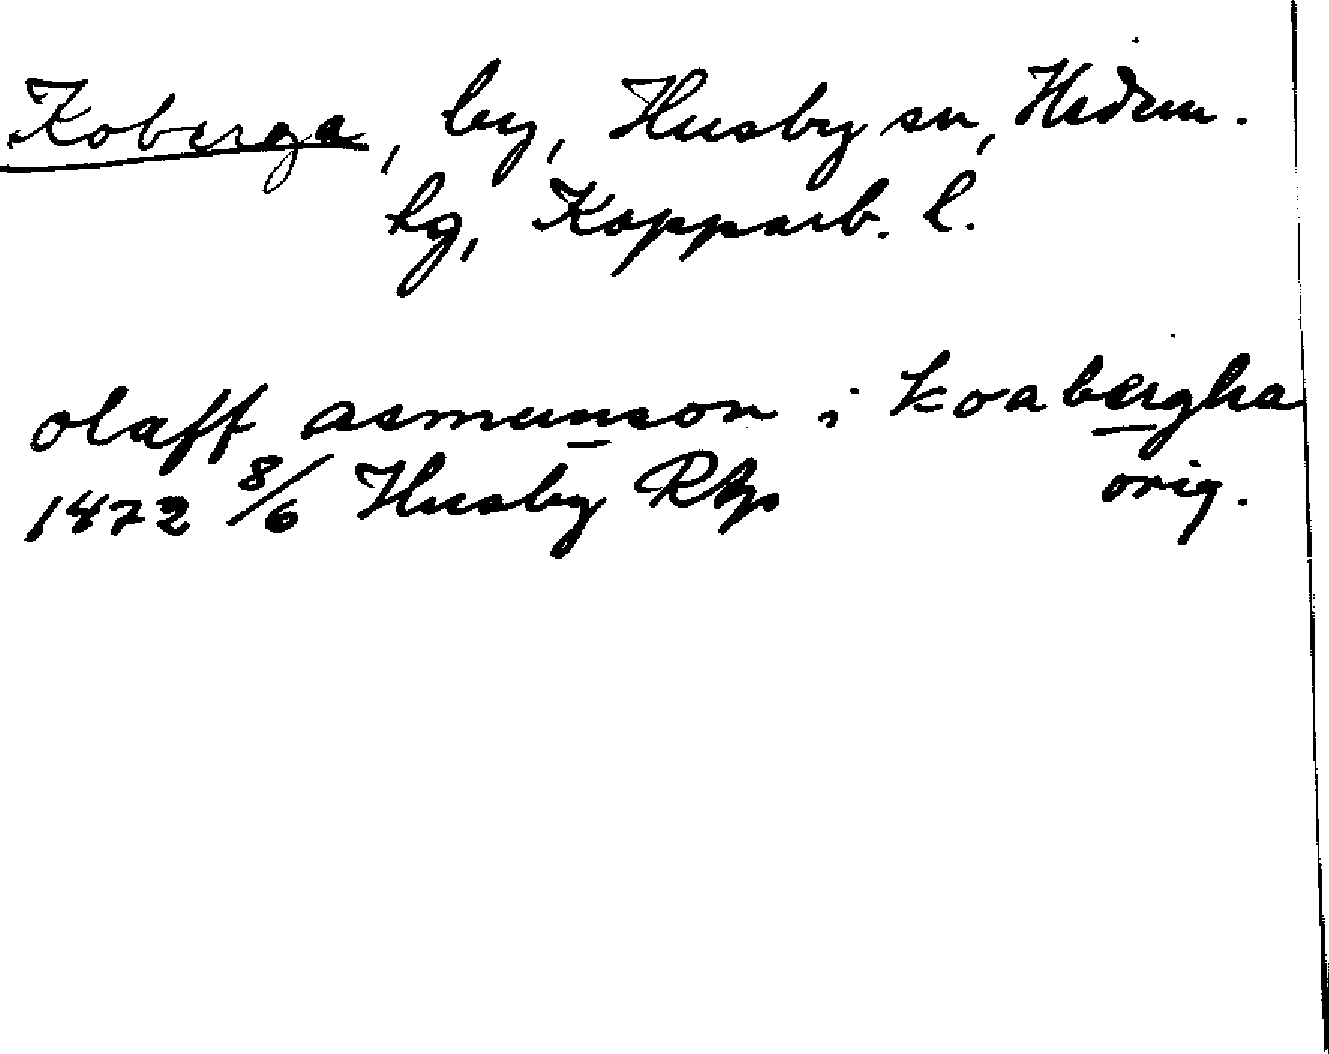 Koberga, by, Husby sn, Hedem.
hg, Kopparb. l.
olaff asmunson i koabergha
1472 8/6 Husby RAp orig.